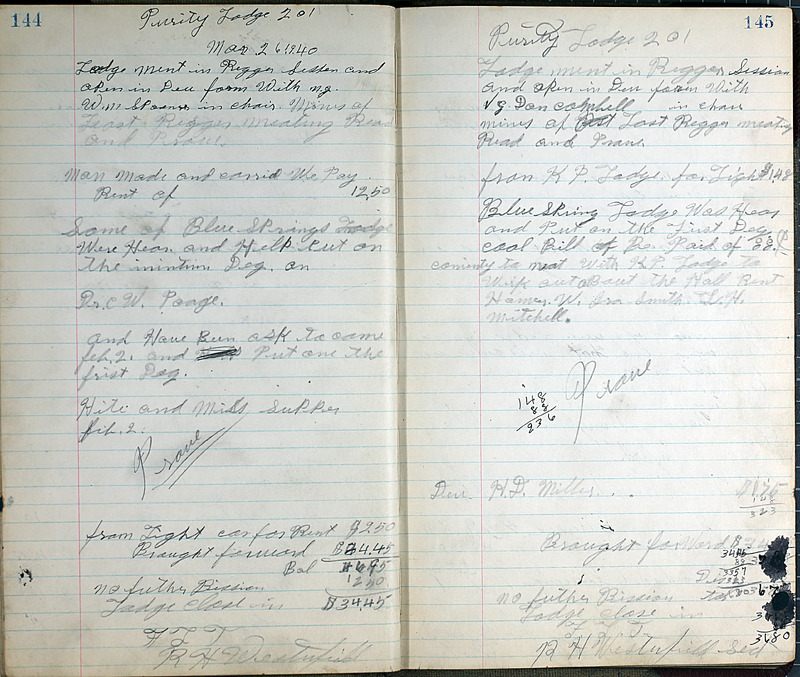 144
Purity Lodge 201
Mar. 26 1940
Lodge ment in Regger Sesson and
open in Deu form With ng.
W.m Spooner in chair. Mines of
Least Regger meating Read
and Prove.
Man made and carrid We Pay
Rent of 12,50
Some of Blue Springs Lodge
Were Hear and Help Put on
The Deg. on
Dr. C W. Poage.
and Have Bun ask to came
feb. 2. and Put one the
frist Deg.
Hite and Miss Supper
feb. 2.
Prove
from Tight car for Rent 9250
Brought forward $24.45
Bal $6.95
1250
no futher Bission
Lodge close in $34.45
F L T
R H Westerfield
145
Purity Lodge 201
Lodge ment in Regger Session
and open in Deu form With
Vg Dan Campbell in chair
mines of Last Regger meating
Read and Prove
from K P. Lodge for Light $148
Blue Spring Lodge Was Hear
and Put on the First Deg.
coal Bill of Be Paid of 88¢
cominty to meat With K.P. Lodge to
Wirk out about the Hall Rent
Hamer, W. Ira Smith. L. H.
Mitchell.
Prove
148
88
236
Deu H.D. Miller. . . $1.75
148
323
Brought for Word $
3445
88
3357
Deu 323
no futher Bission
Lodge close in
F L T
3680
R H Westerfield Sec